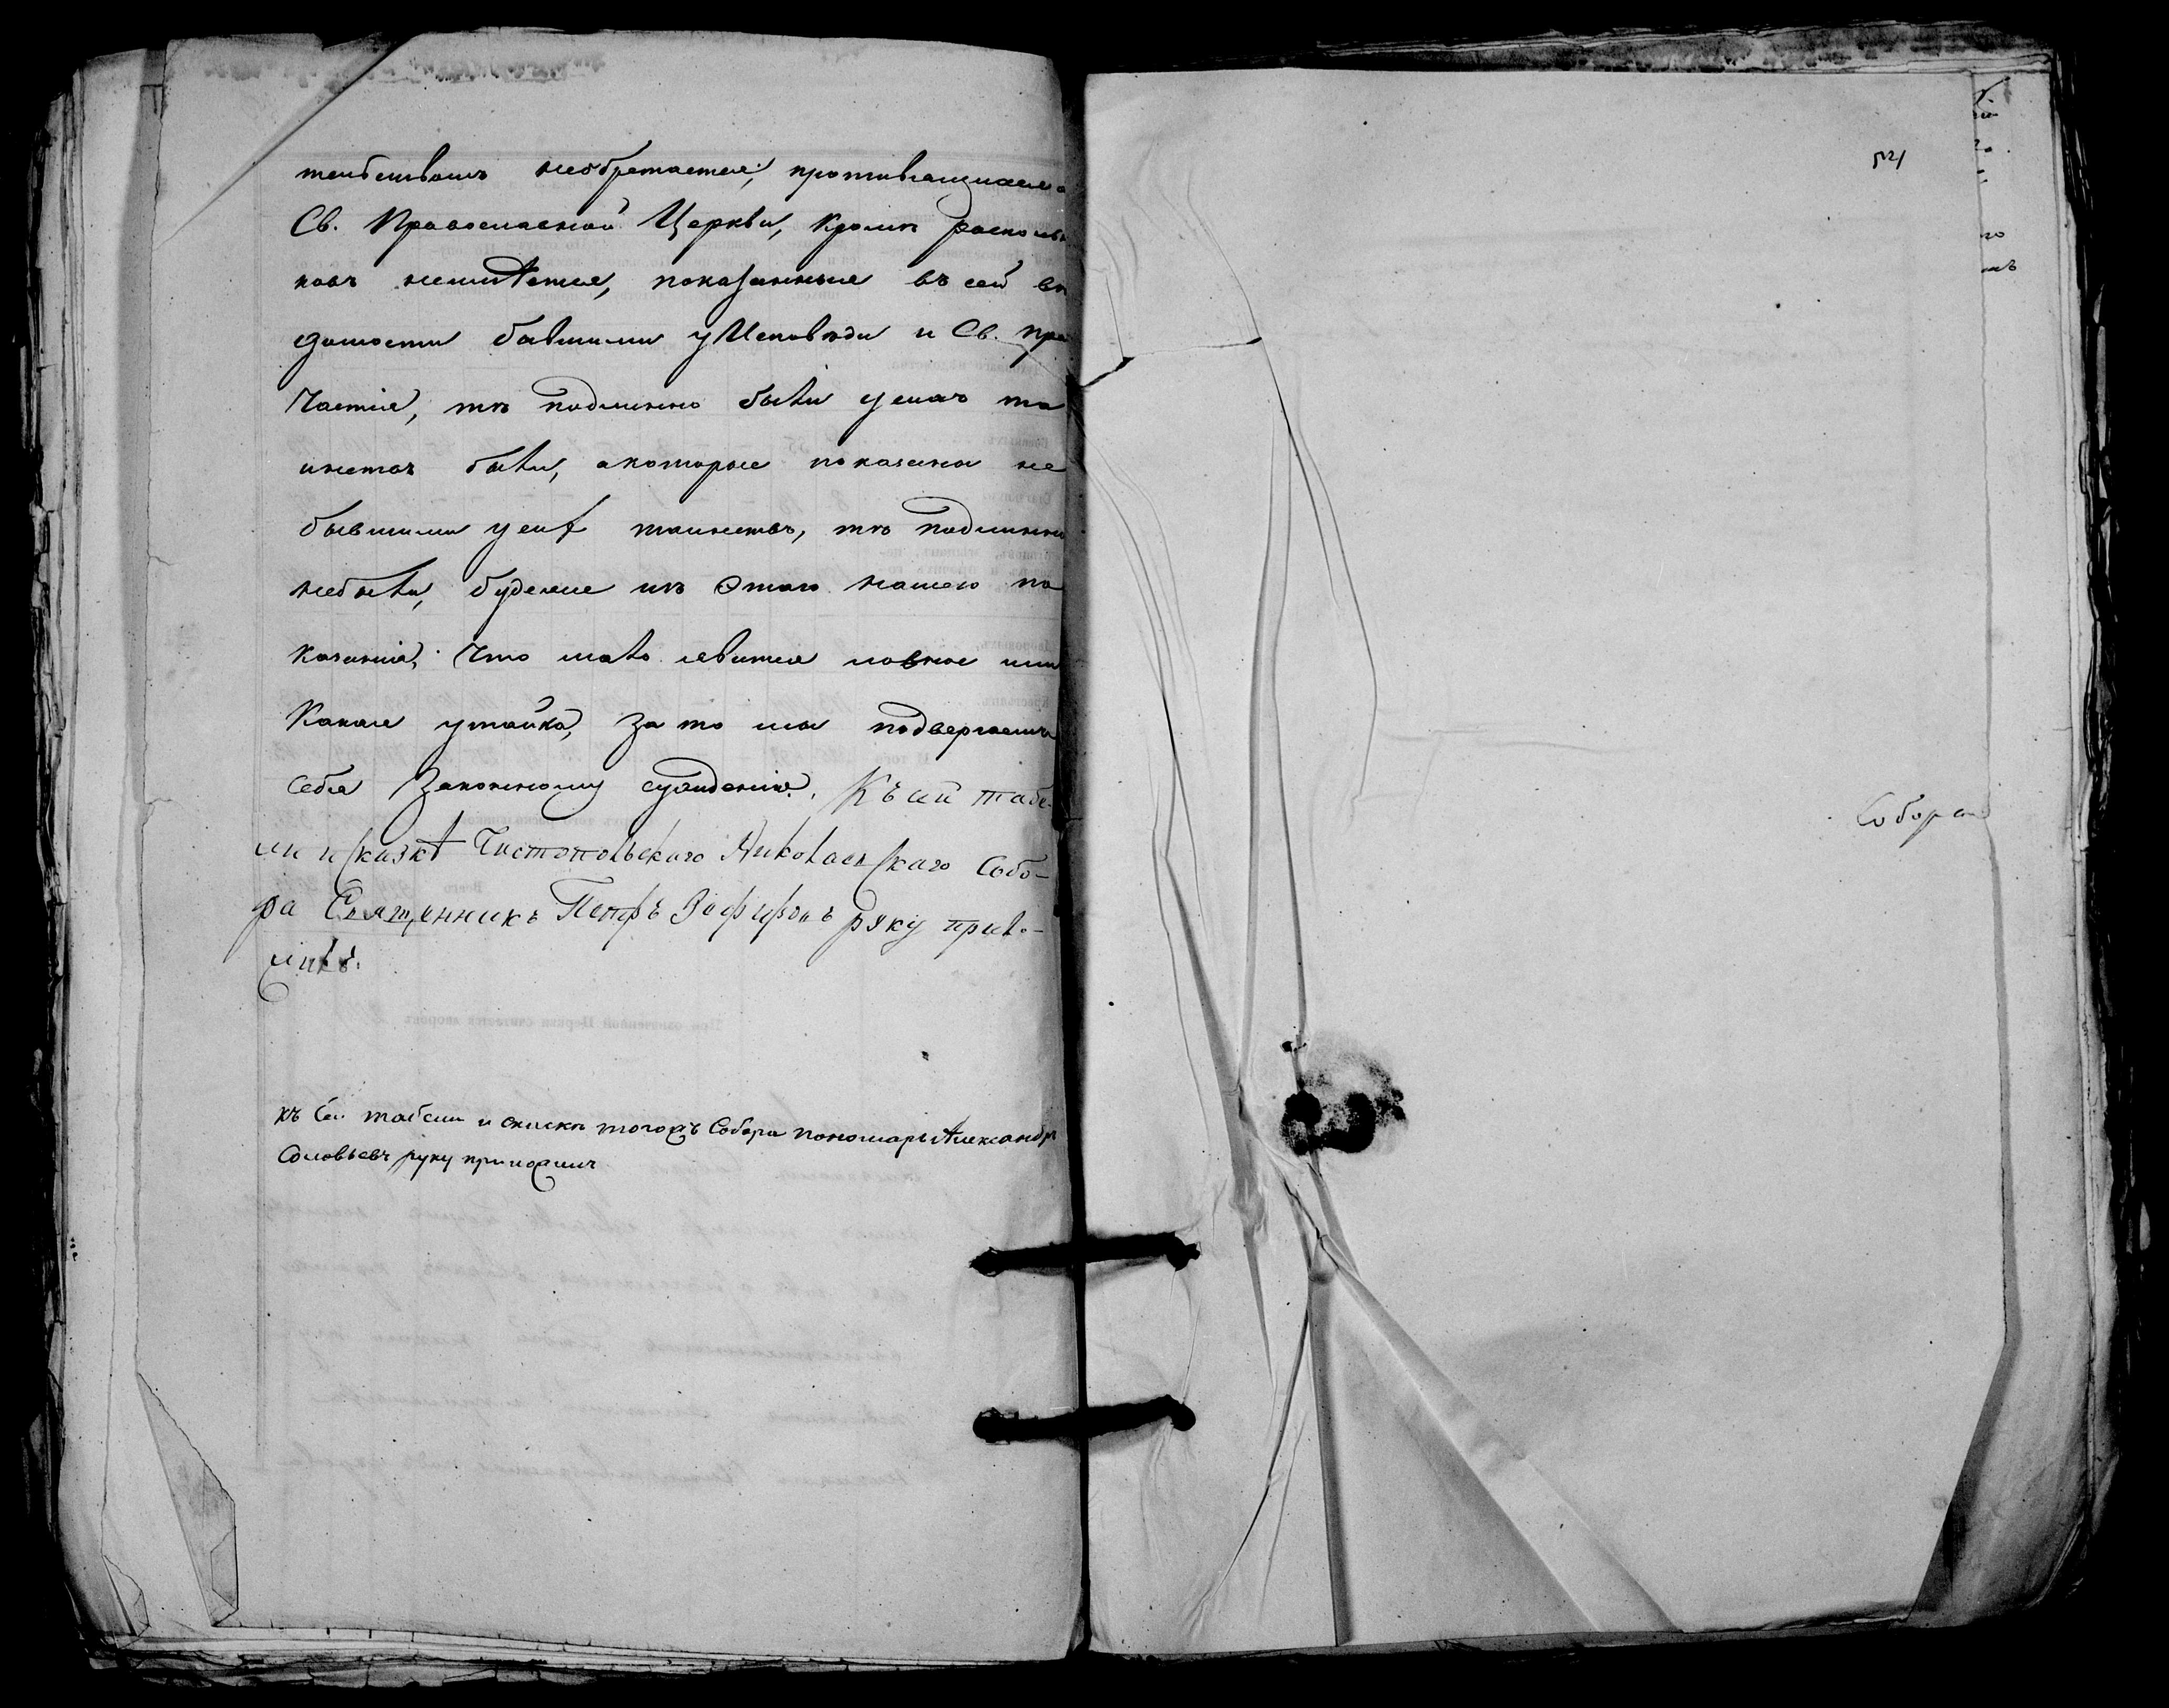 тельствомъ необретается, противящихся
Св. Православной Церкви, кромѣ расколь
ковъ неимѣется, показанные въ сей вѣ
домости бывшими у Исповѣди и Св. При
частія, тѣ подлинно были у сихъ та
инствъ были, а которые показаны не
бывшими у сихъ таинствъ, тѣ подлинно
небыли, буде же изъ этого нашего по
казанія, что либо явится ложное или
Какая утайка, за то мы подвергаемъ
себя Законному сужденію. Къ сей табе-
ли и сказкѣ Чистопольскаго Николаевскаго Собо-
ра Священникъ Петръ Зефировъ руку прило-
жилъ.
къ сей табели и сказкѣ тогожъ Собора пономарь Александръ
Соловьевъ руку приложилъ
Собора